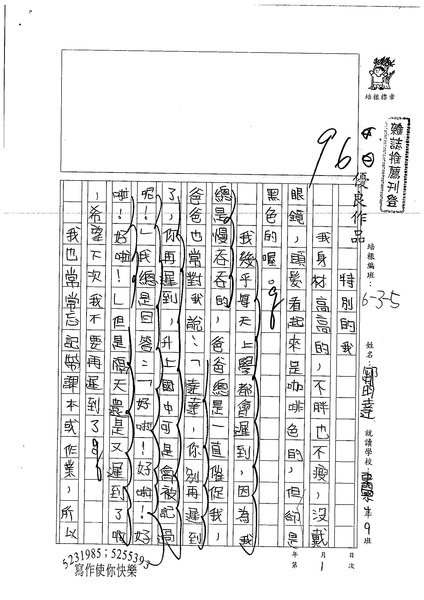 培根標章
雜誌推薦刊登
優良作品
96
培根編班：
6-3-5
姓名：
就讀學校：
年9班
目次
月1
年第
特別的我
我身材高高的，不胖也不瘦，沒戴
眼鏡，頭髮看起來是咖啡色的，但卻是
黑色的喔。
我幾乎每天上學都會遲到，因為我
總是慢吞吞的，爸爸總是一直催促我，
爸爸也常對我說：「達達，你別再遲到
了，你再遲到，升上國中可是會被記過
呢！」我總是回答：「好啦！好啦！好
啦！好啦！」但是隔天還是又遲到了啊
，希望下次我不要再遲到了。
我也常常忘記帶課本或作業，所以
5231985；5255393
寫作使你快樂